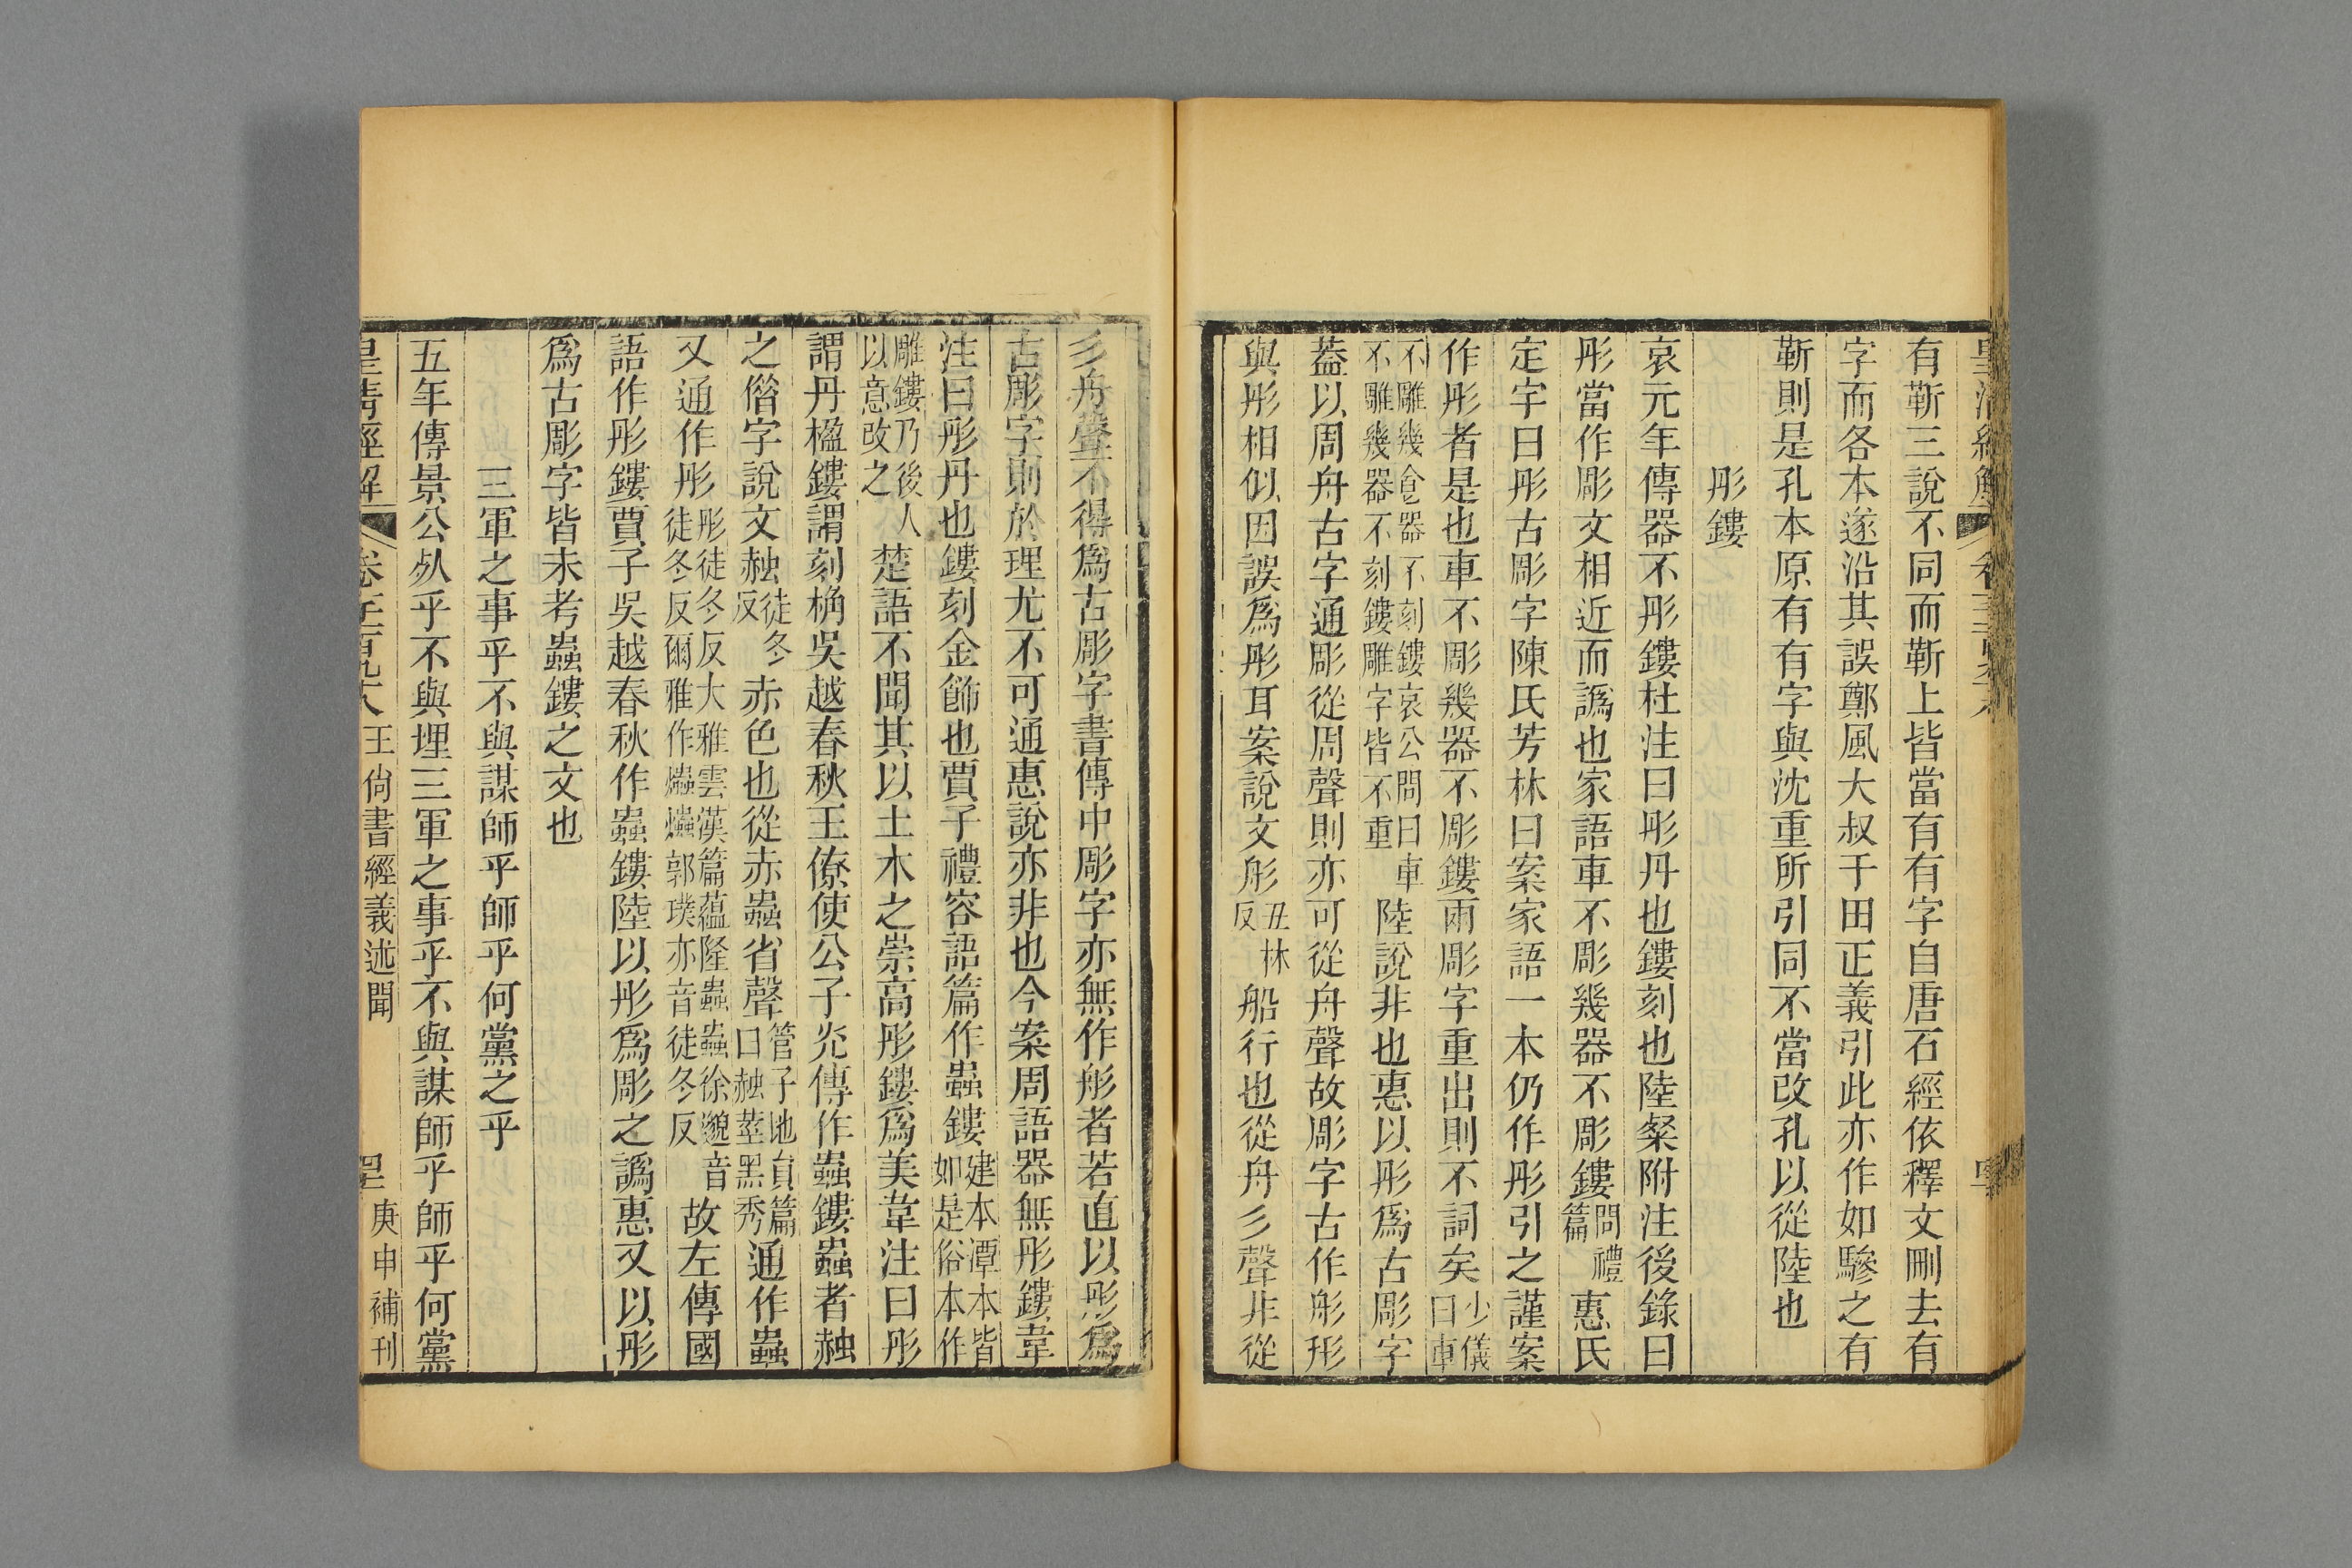 有靳三說不同而靳上皆當有有字自唐石經依釋文刪去有
字而各本遂沿其誤鄭風大叔于田正義引此亦作如驂之有
靳則是孔本原有有字與沈重所引同不當改孔以從陸也
彤鏤
哀元年傳器不彤鏤杜注曰彤丹也鏤刻也陸粲附注後錄曰
彤當作彫文相近而譌也家語車不彫幾器不彫鏤問禮篇惠氏
定宇曰彤古彫字陳氏芳林曰案家語一本仍作彤引之謹案
作彤者是也車不彫幾器不彫鏤兩彫字重出則不詞矣少儀曰車
不雕幾食器不刻鏤哀公問曰車不雕幾器不刻鏤雕字皆不重陸說非也惠以彤爲古彫字
葢以周舟古字通彫從周聲則亦可從舟聲故彫字古作彤形
與彤相似因誤爲彤耳案說文彤丑林反船行也從舟彡聲非從
彡舟聲不得爲古彫字書傳中彫字亦無作彤者若直以彤爲
古彫字則於理尤不可通惠說亦非也今案周語器無彤鏤韋
注曰彤丹也鏤刻金飾也賈子禮容語篇作蟲鏤建本潭本皆如是俗本作
雕鏤乃後人以意改之楚語不聞其以土木之崇高彤鏤爲美韋注曰彤
謂丹楹鏤謂刻桷吳越春秋王僚使公子光傳作蟲鏤蟲者赨
之偺字說文赨徒冬反赤色也從赤蟲省聲管子地員篇曰赨莖黑秀通作蟲
又通作彤彤徒冬反大雅雲漢篇蘊隆蟲蟲徐邈音徒冬反爾雅作爞爞郭璞亦音徒冬反故左傳國
語作彤鏤賈子吳越春秋作蟲鏤陸以彤爲彫之譌惠又以彤
爲古彫字皆未考蟲鏤之文也
三軍之事乎不與謀師乎師乎何黨之乎
五年傳景公㱾乎不與埋三軍之事乎不與謀師乎師乎何黨
皇清經解 卷千一百九十八 王尙書經義述聞 庚申補刊